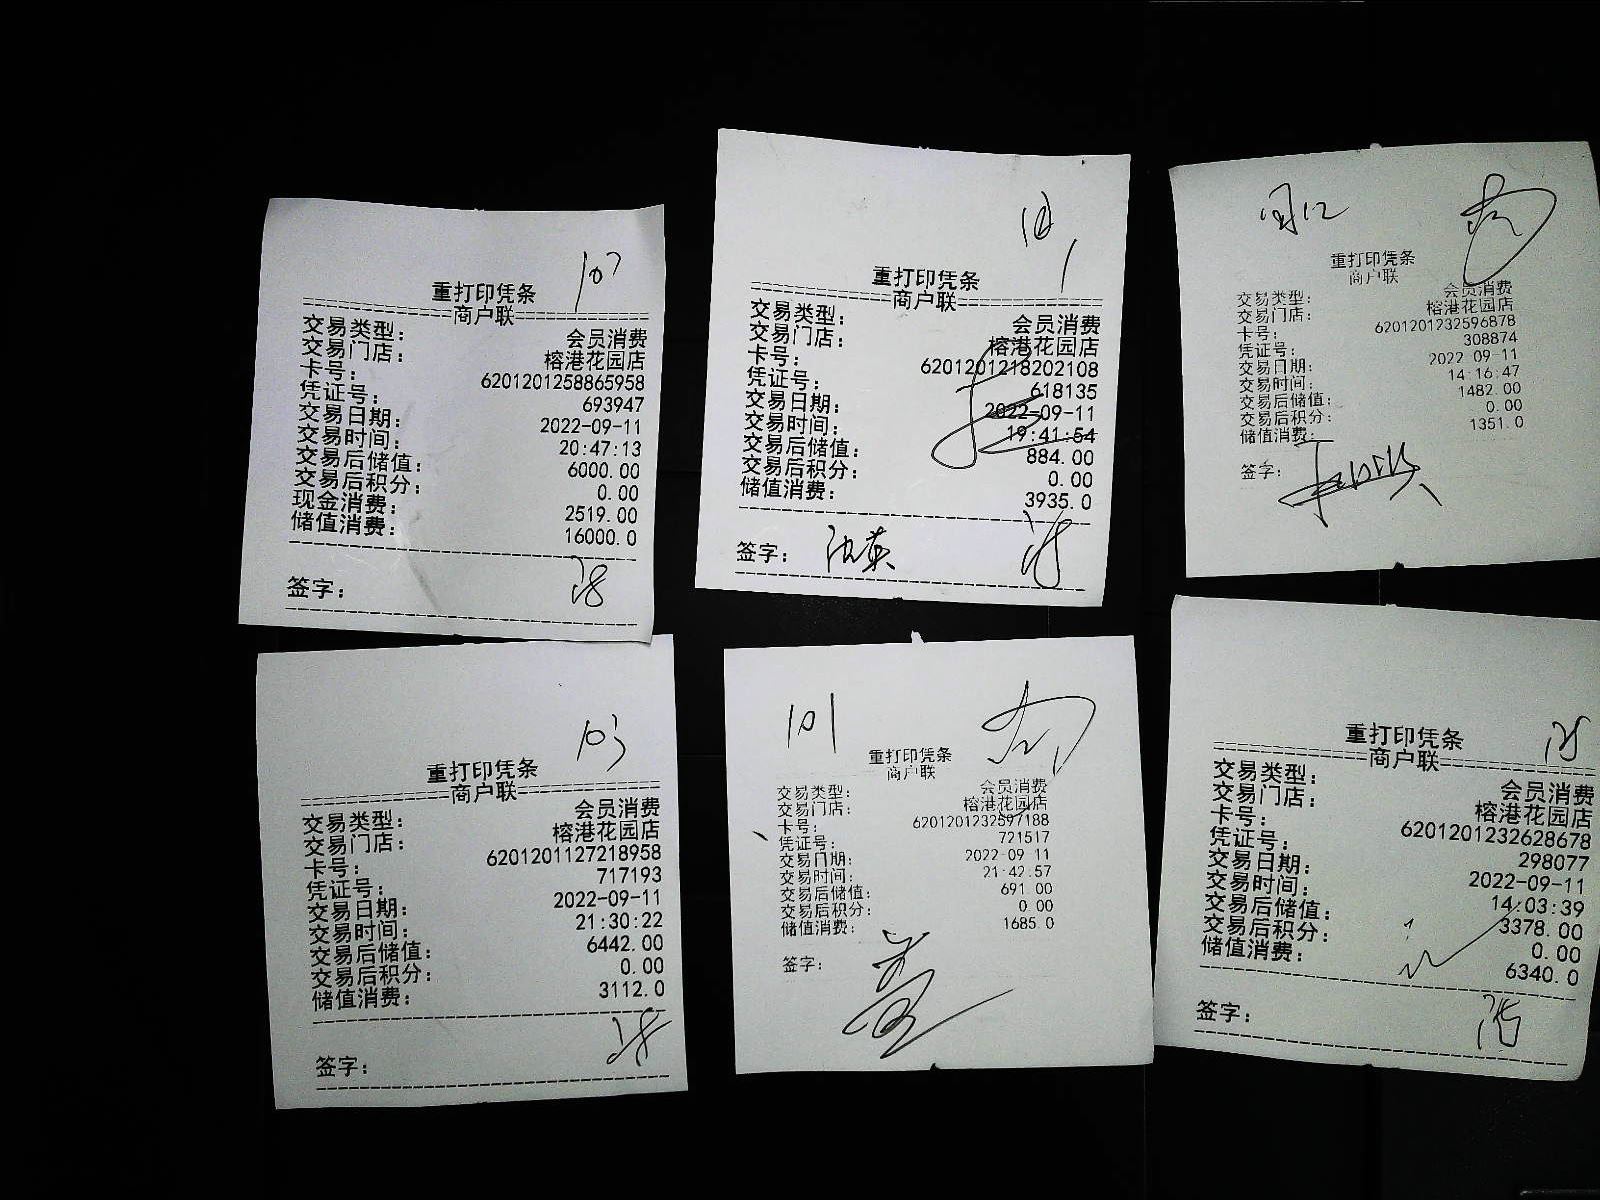 107
重打印凭条
商户联
交易类型： 会员消费
交易门店： 榕港花园店
卡号： 6201201258865958
凭证号： 693947
交易日期： 2022-09-11
交易时间： 20:47:13
交易后储值： 6000.00
交易后积分： 0.00
现金消费： 2519.00
储值消费： 16000.0
签字：
重打印凭条
商户联
交易类型： 会员消费
交易门店： 榕港花园店
卡号： 6201201218202108
凭证号： 618135
交易日期： 2022-09-11
交易时间： 19:41:54
交易后储值： 884.00
交易后积分： 0.00
储值消费： 3935.0
签字：
重打印凭条
商户联
交易类型： 会员消费
交易门店： 榕港花园店
卡号： 6201201232596878
凭证号： 308874
交易日期： 2022-09-11
交易时间： 14:16:47
交易后储值： 1482.00
交易后积分： 0.00
储值消费： 1351.0
签字：
103
重打印凭条
商户联
交易类型： 会员消费
交易门店： 榕港花园店
卡号： 6201201127218958
凭证号： 717193
交易日期： 2022-09-11
交易时间： 21:30:22
交易后储值： 6442.00
交易后积分： 0.00
储值消费： 3112.0
签字：
101
重打印凭条
商户联
交易类型： 会员消费
交易门店： 榕港花园店
卡号： 6201201232597188
凭证号： 721517
交易日期： 2022-09-11
交易时间： 21:42:57
交易后储值： 691.00
交易后积分： 0.00
储值消费： 1685.0
签字：
重打印凭条
商户联
交易类型： 会员消费
交易门店： 榕港花园店
卡号： 6201201232628678
凭证号： 298077
交易日期： 2022-09-11
交易时间： 14:03:39
交易后储值： 3378.00
交易后积分： 0.00
储值消费： 6340.0
签字：